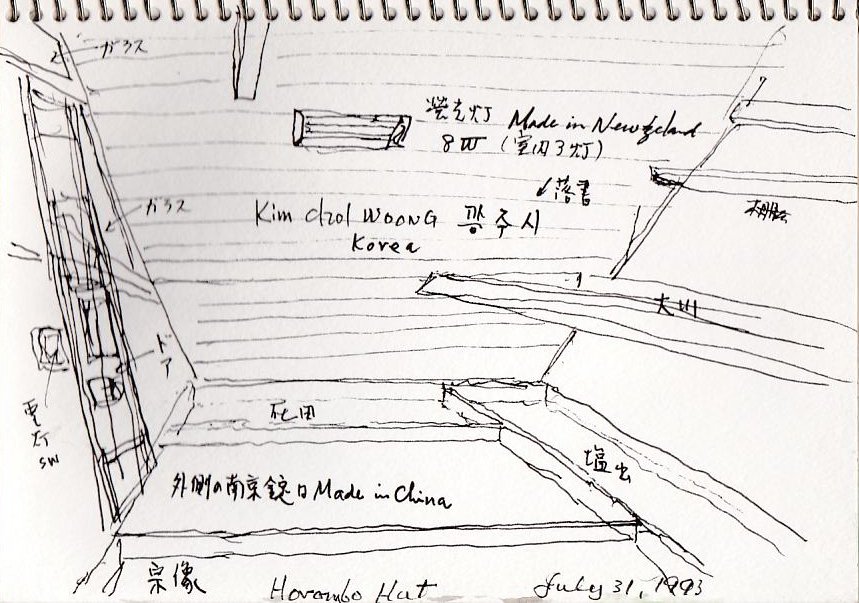 ガラス
螢光灯 Made in Newzeland
8W (室内3灯)
ガラス
↙落書
Kim chol WOONG 광주시
Korea
大川
ドア
電灯
SW
石田
塩出
外側の南京錠は Made in China
宗像
Horombo Hut
July 31, 1993